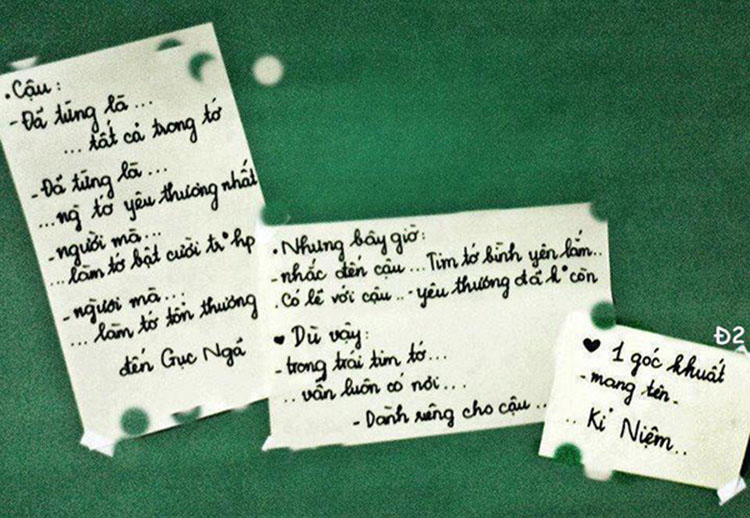 . Cậu :
- Đã từng là ...
... tất cả trong tớ
- Đã từng là ...
... ng̀ tớ yêu thương nhất
- người mà ...
... làm tớ bật cười tr° hp
- người mà ...
... làm tớ tổn thương
đến Gục Ngã
. Nhưng bây giờ :
- nhắc đến cậu ... Tim tớ bình yên lắm ..
. Có lẽ với cậu ... yêu thương đã k° còn
♥ Dù vậy :
- trong trái tim tớ ...
.. vẫn luôn có nơi ...
- Dành riêng cho cậu ..
Đ2
♥ 1 góc khuất
- mang tên -
.. Kỉ Niệm ..